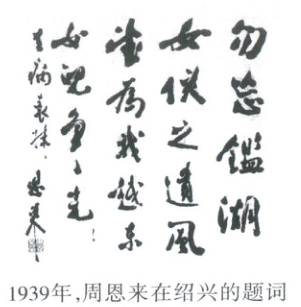 勿忘鑑湖
女俠之遺風
望為我越東
女兒争光！
去病表妹。恩来
1939年,周恩来在绍兴的题词